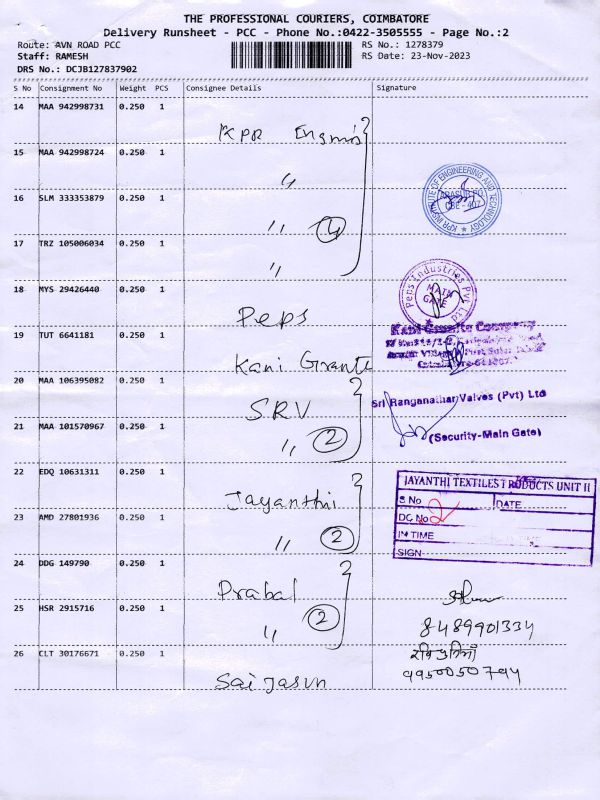 THE PROFESSIONAL COURIERS, COIMBATORE
Delivery Runsheet - PCC - Phone No.:0422-3505555 - Page No.:2
Route: AVN ROAD PCC
RS No.: 1278379
Staff: RAMESH
RS Date: 23-Nov-2023
DRS No.: DCJB127837902
S No Consignment No Weight PCS Consignee Details Signature
14 MAA 942998731 0.250 1
KPR Engnis
15 MAA 942998724 0.250 1
〃
16 SLM 333353879 0.250 1
〃 4
KPR INSTITUTE OF ENGINEERING AND TECHNOLOGY
ARASUR PO
CBE - 407
17 TRZ 105006034 0.250 1
〃
18 MYS 29426440 0.250 1
Peps
Peps Industries Pvt Ltd
MAIN GATE
19 TUT 6641181 0.250 1
Kani Grante
Kani Granite Company
20 MAA 106395082 0.250 1
S.R.V
Sri Ranganathar Valves (Pvt) Ltd
21 MAA 101570967 0.250 1
〃 2
(Security-Main Gate)
22 EDQ 10631311 0.250 1
Jayanthi
JAYANTHI TEXTILES PRODUCTS UNIT II
S No DATE
DC No 2
IN TIME
SIGN
23 AMD 27801936 0.250 1
〃 2
24 DDG 149790 0.250 1
Prabal
25 HSR 2915716 0.250 1
〃 2
8489901334
26 CLT 30176671 0.250 1
Sai Jasun
9950050794